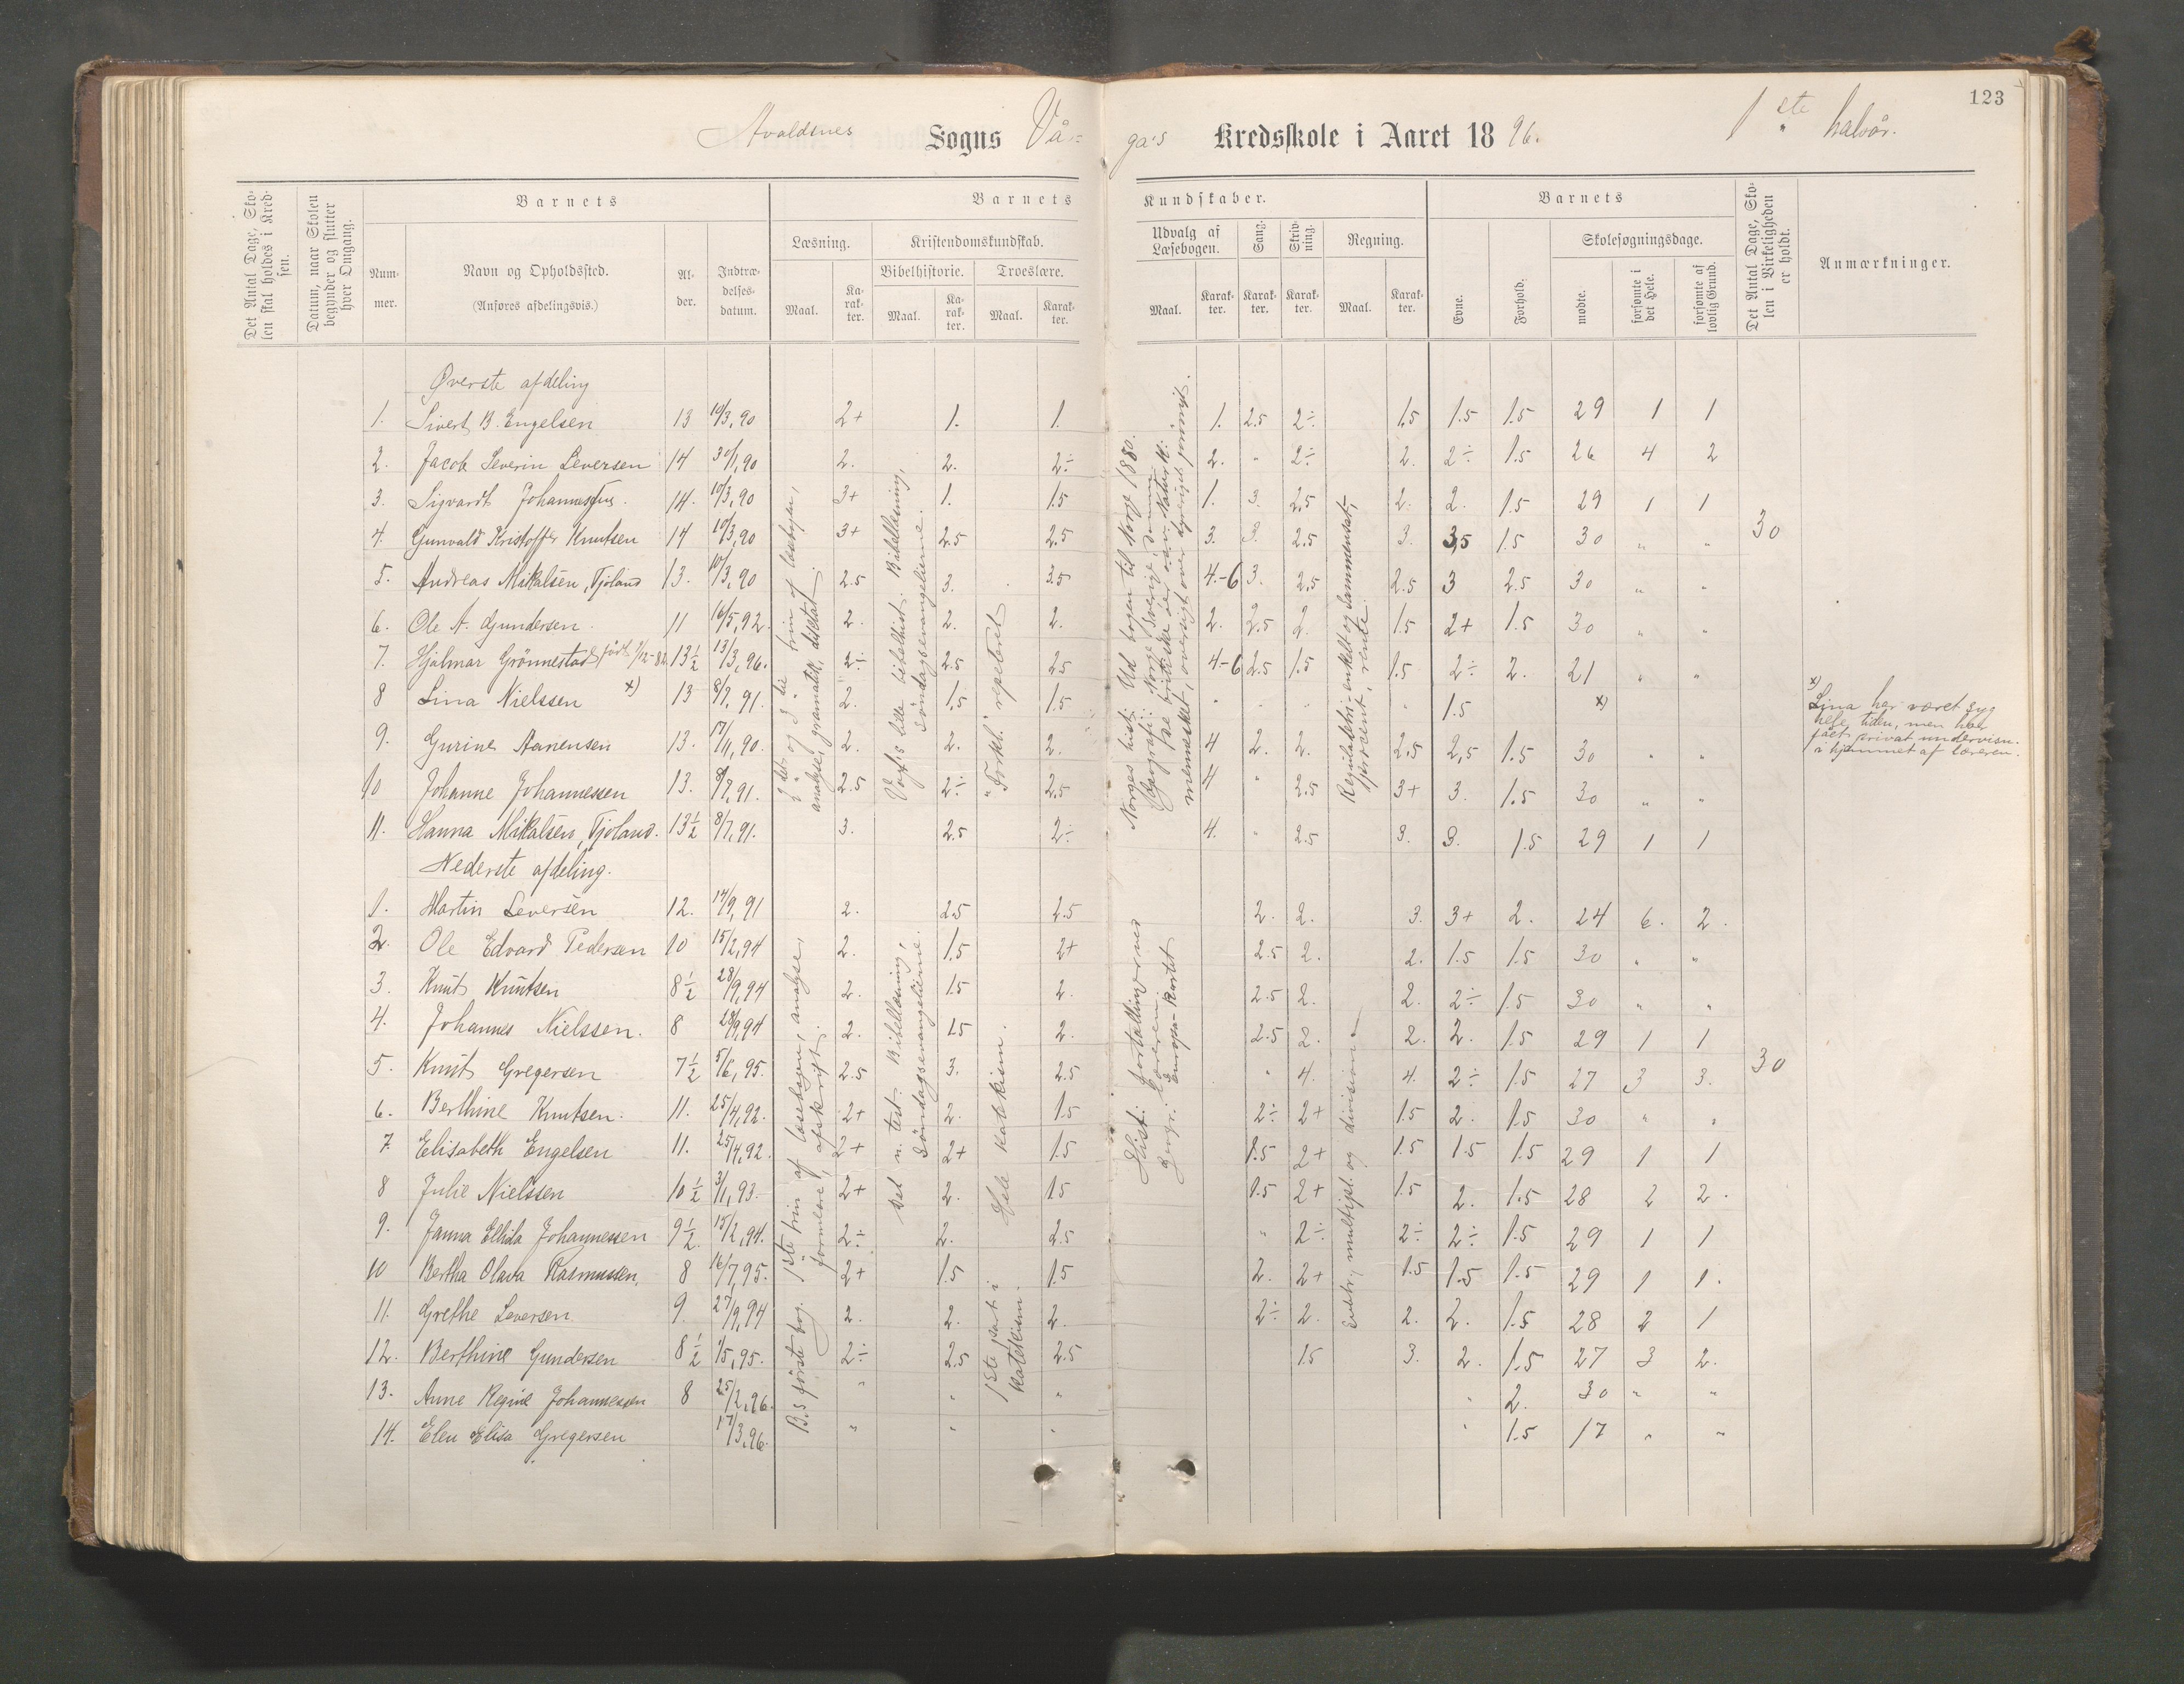 123
Avaldsnes Sogns Vå- ga's Kredsskole i Aaret 1896. 1ste halvår.
Det Antal Dage, Skolen skal holdes i Kredsen.
Datum, naar Skolen begynder og slutter hver Omgang.
Barnets
Nummer.
Navn og Opholdssted.
(Anføres afdelingsvis.)
Alder.
Indtrædelsesdatum.
Barnets Kundskaber.
Læsning.
Maal.
Karakter.
Kristendomskundskab.
Bibelhistorie.
Maal.
Karakter.
Troeslære.
Maal.
Karakter.
Udvalg af Læsebogen.
Maal.
Karakter.
Sang.
Karakter.
Skrivning.
Karakter.
Regning.
Maal.
Karakter.
Barnets
Evne.
Forhold.
Skolesøgningsdage.
mødte.
forsømte i det Hele.
forsømte af lovlig Grund.
Det Antal Dage, Skolen i Virkeligheden er holdt.
Anmærkninger.
Øverste afdeling
1. Sivert B. Engelsen 13 10/3,90 2+ 1. 1. 1. 2.5 2÷ 1.5 1.5 1.5 29 1 1
2. Jacob Severin Seversen 14 30/1,90 2. 2. 2÷ 2. " 2÷ 2. 2÷ 1.5 26 4 2
3. Sigvardt Johannessen. 14. 10/3,90 3+ 1. 1.5 1. 3. 2.5 2. 2. 1.5 29 1 1
4. Gunvald Kristoffer Knutsen 14 10/3,90 3+ 2.5 2.5 3. 3. 2.5 3. 3,5 1.5 30 " "
30
5. Andreas Mikalsen, Tjøland 13. 10/3,90 2.5 3. 3.5 4.-6 3. 2.5 2.5 3 2.5 30 " "
6. Ole A. Gundersen 11 16/5,92. 2. 2. 2. 2. 2.5 2. 1.5 2+ 1.5 30 " "
7. Hjalmar Grönnestad født 1/12-82. 13½ 13/3,96. 2÷ 2.5 2.5 4-6 2.5 1.5 1.5 2÷ 2. 21 " "
8 Lina Nielssen x) 13 8/7,91. 2. 1.5 1.5 " " " " 1.5 x)
9. Gurine Aanensen 13. 17/11,90. 2. 2. 2. 4 2. 2. 2.5 2,5 1.5 30 " "
10 Johanne Johannessen 13. 8/7,91. 2.5 2÷ 2.5 4 " 2.5 3+ 3. 1.5 30 " "
11. Hanna Mikalsen, Tjøland. 13½ 8/7,91. 3. 2.5 2÷ 4. " 2.5 3. 3. 1.5 29 1 1
x) Lina har været syg
hele tiden, men har
fået privat undervisn.
i hjemmet af læreren.
3det og 3die trin af læsebogen,
analyse, gramatik, diktat.
Vogts lille bibelhist. Bibellæsning,
söndagsevangelierne.
"Forkl." repeteret
Norges hist: Ud bogen til Norge 1880.
mennesket, oversigt over dyreriget forövrigt.
Reguladetri - enkelt og sammensat,
procent, rente.
Nederste afdeling.
1. Martin Seversen 12. 14/9,91 2. 2.5 2.5 2. 2. 3. 3+ 2. 24 6. 2.
2. Ole Edvard Pedersen 10 15/2,94 2. 1.5 2+ 2.5 2. 2. 1.5 1.5 30 " "
3. Knut Knutsen 8½ 28/9,94 2. 1.5 2. 2.5 2. 2. 2÷ 1.5 30 " "
4. Johannes Nielssen. 8 28/9,94 2. 1.5 2. 2.5 2. 2. 2. 1.5 29 1 1
5. Knut Gregersen 7½ 5/6,95. 2.5 3. 2.5 " 4. 4. 2÷ 1.5 27 3 3.
30
6. Berthine Knutsen. 11. 25/4,92. 2+ 2. 1.5 2÷ 2+ 1.5 2. 1.5 30 " "
7. Elisabeth Engelsen 11. 25/4,92. 2+ 2+ 1.5 1.5 2+ 1.5 1.5 1.5 29 1 1
8 Julie Nielssen 10½ 3/1,93. 2+ 2. 1.5 1.5 2+ 1.5 2. 1.5 28 2 2.
9. Janna Ellida Johannessen 9½. 15/2,94. 2÷ 2. 2.5 " 2÷ 2÷ 2÷ 1.5 29 1 1
10 Bertha Olava Rasmussen, 8 16/7,95. 2+ 1.5 1.5 2. 2+ 1.5 1.5 1.5 29 1 1.
11. Grethe Seversen 9. 27/9,94 2. 2. 2. 2÷ 2. 2. 2. 1.5 28 2 1
12. Berthine Gundersen 8½ 1/5,95. 2÷ 2.5 2.5 1.5 3. 2. 1.5 27 3 2.
13. Anne Regine Johannessen 8 25/2,96. " " " " 2. 30 " "
14. Elen Elisa Gregersen 17/3,96. " " " " 1.5 17 " "
1ste trin af læsebogen, analyse,
formlære, afskrift.
B.s förste bog.
Det n. test. Bibellæsning,
söndagsevangelierne.
Hele katekism.
1ste part i
katekism.
Hist: fortællingerne
Geogr.: Europa-kartet
Subtr., multipl. og division.